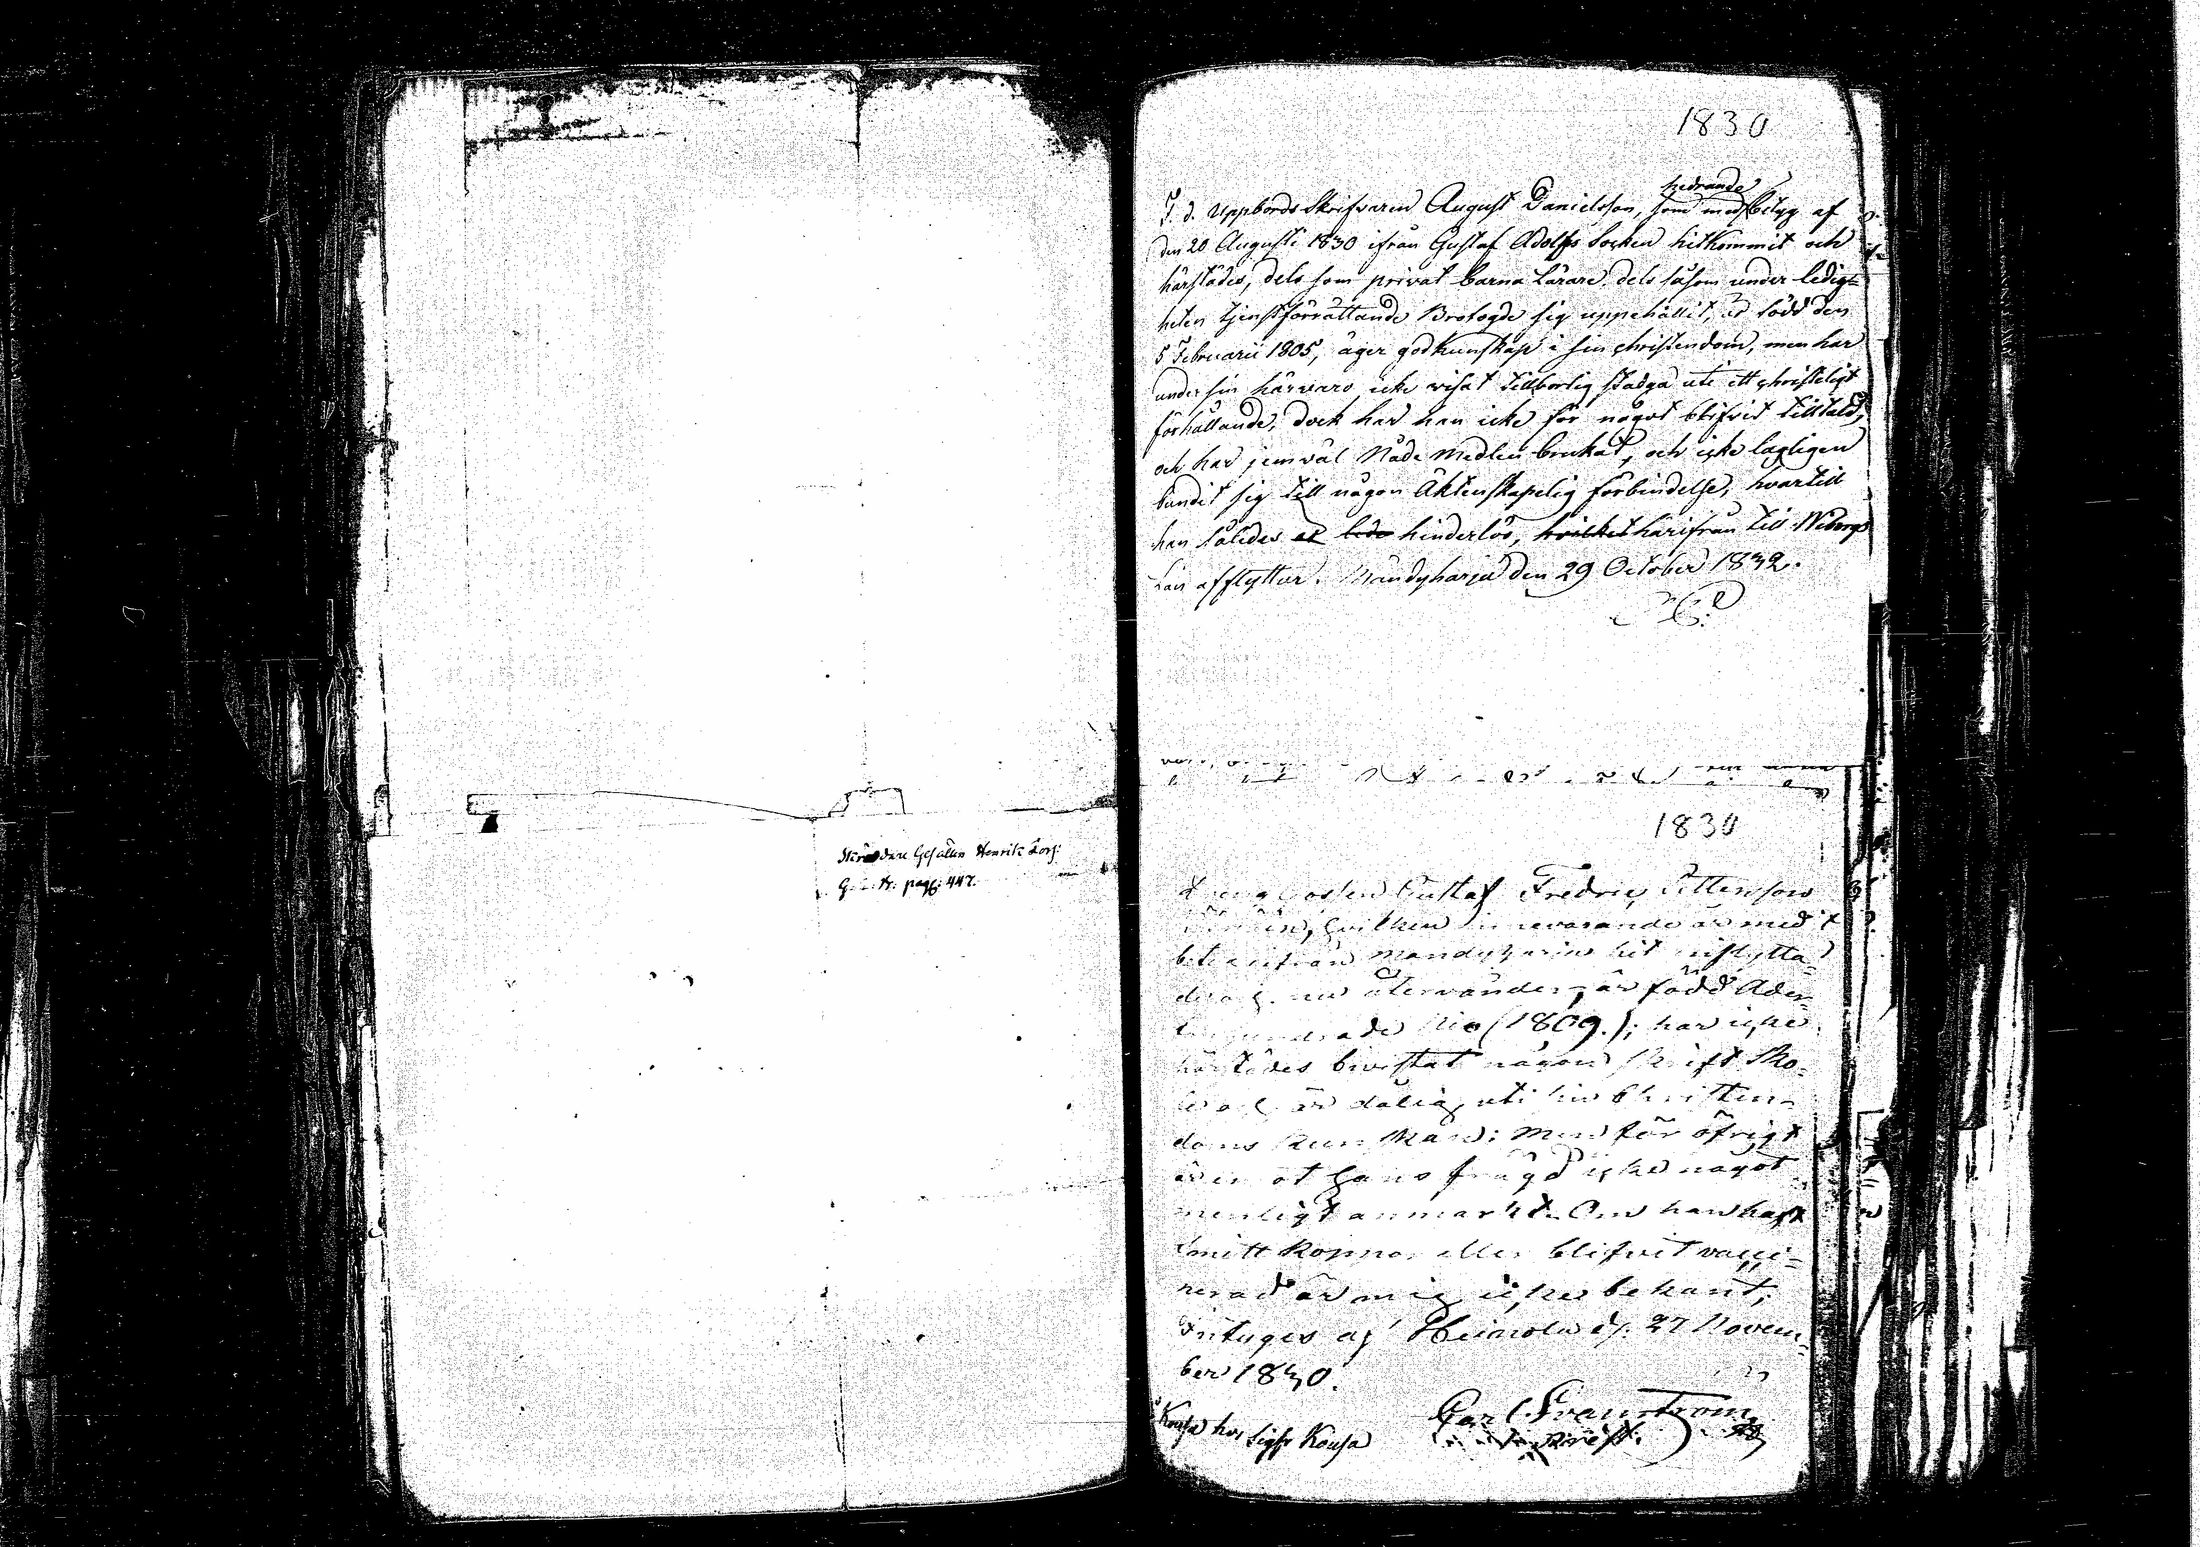 Skräddare Gesällen Henrik Torf:
pag: 447.
1830
hedrande
F. d. Uppbords Skrifvaren August Danielsson, som med betyg af
den 20 Augusti 1830 ifrån Gustaf Adolfs Socken hitkommit och
härstädes, dels som privat barna Lärare, dels såsom under ledig-
heten tjenstförrättande Brofogde sig uppehållit, är född den
5 Februarii 1805, äger god kunskap i sin christendom, men har
under sin härvaro icke visat tillbörlig stadga uti ett christeligt
förhållande, dock har han icke för något blifvit tilltald,
och har jemväl Nåde medlen brukat, och icke lagligen
bundit sig till någon Äktenskapelig förbindelse, hvartill
han således är hinderlös, hvilket härifrån till Wiborgs
Län afflyttar. Mändyharju den 29 October 1832.
1830
Gustaf Fredric Pettersson
hvilken innevarande år med
ifrån Mandyharju hit inflytta-
de och nu återvänder, är född Ader-
tonhundrade Nio (1809.); har icke
härstädes bivistat någon Skrift Sko-
la och är dålig uti sin Christen-
doms kunskap; men för öfrigt
är emot hans frägd icke något
menligt anmärkt. Om han haft
Smitt koppor eller blifvit vacci-
nerad är mig icke bekant;
Intyges af Heinola d. 27 Novem-
ber 1830.
Carl Granström
Kousa hos Sigfr Kousa